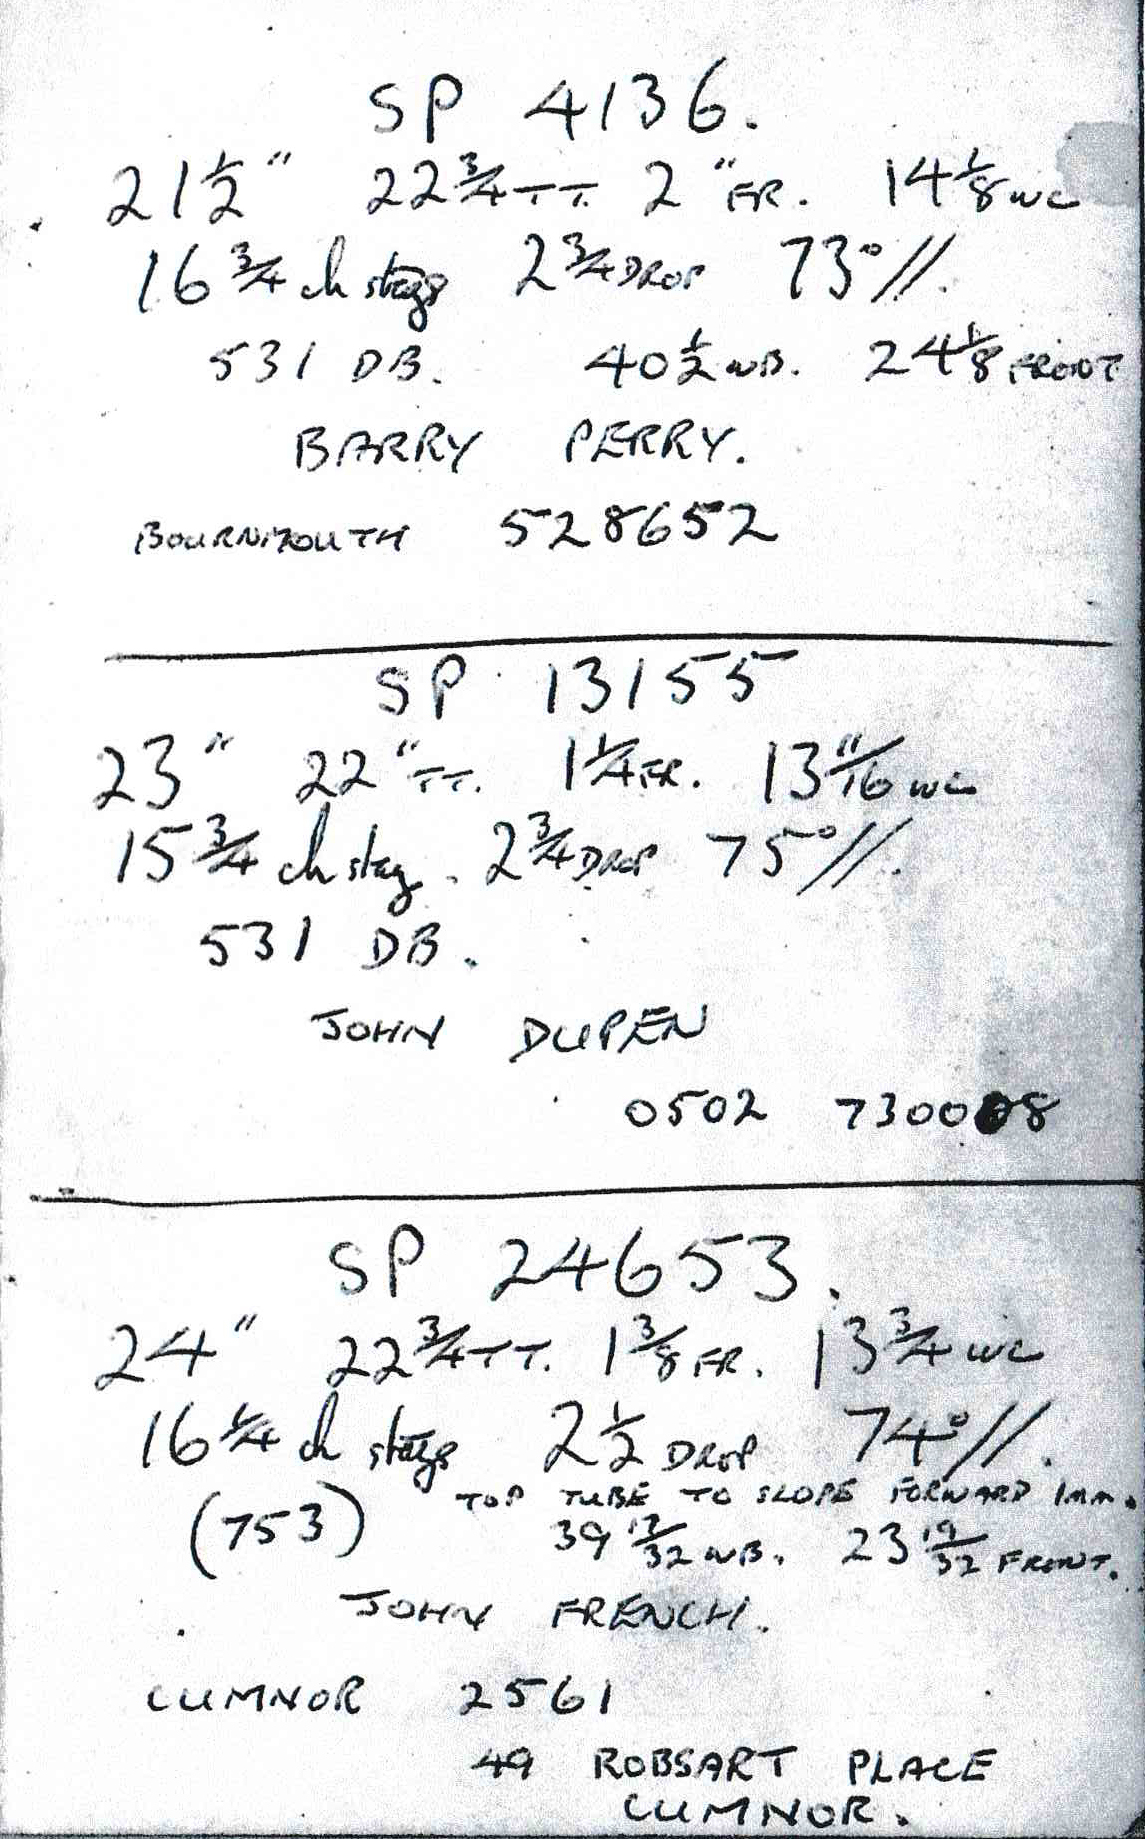 SP 4136.
21½" 22¾ TT. 2" FR. 14⅛ WC
16¾ ch stays 2¾ DROP 73° //.
531 DB. 40½ WB. 24⅛ FRONT
BARRY PERRY.
BOURNMOUTH 528652
SP 13155
23" 22" TT. 1¼ FR. 13 11/16 WC
15¾ ch stay. 2¾ DROP 75° //.
531 DB.
JOHN DUPEN
0502 730008
SP 24653.
24" 22¾ TT. 1⅜ FR. 13¾ WC
16¼ ch stays 2½ DROP 74° //.
TOP TUBE TO SLOPE FORWARD 1mm.
(753) 39 17/32 WB. 23 19/32 FRONT.
JOHN FRENCH.
CUMNOR 2561
49 ROBSART PLACE
CUMNOR.